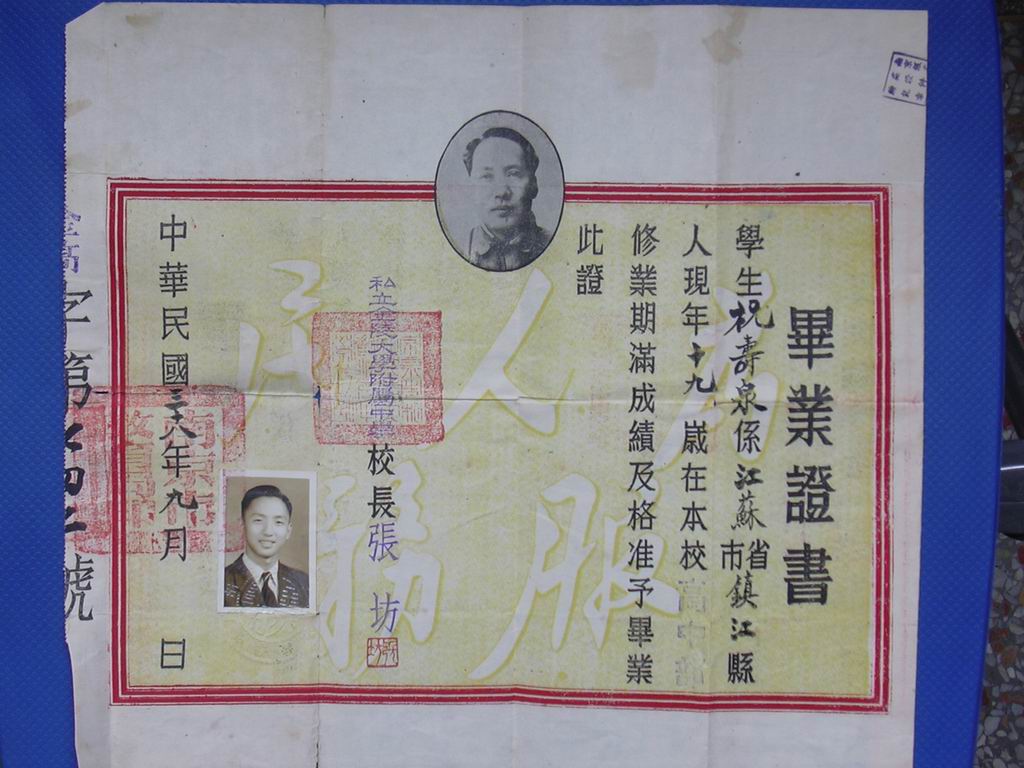 畢業證書
學生祝壽泉係江蘇省市鎮江縣
人現年十九歲在本校高中部
修業期滿成績及格准予畢業
此證
私立金陵大學附屬中學校長張坊
中華民國三十八年九月 日
字第
號
為人民服務